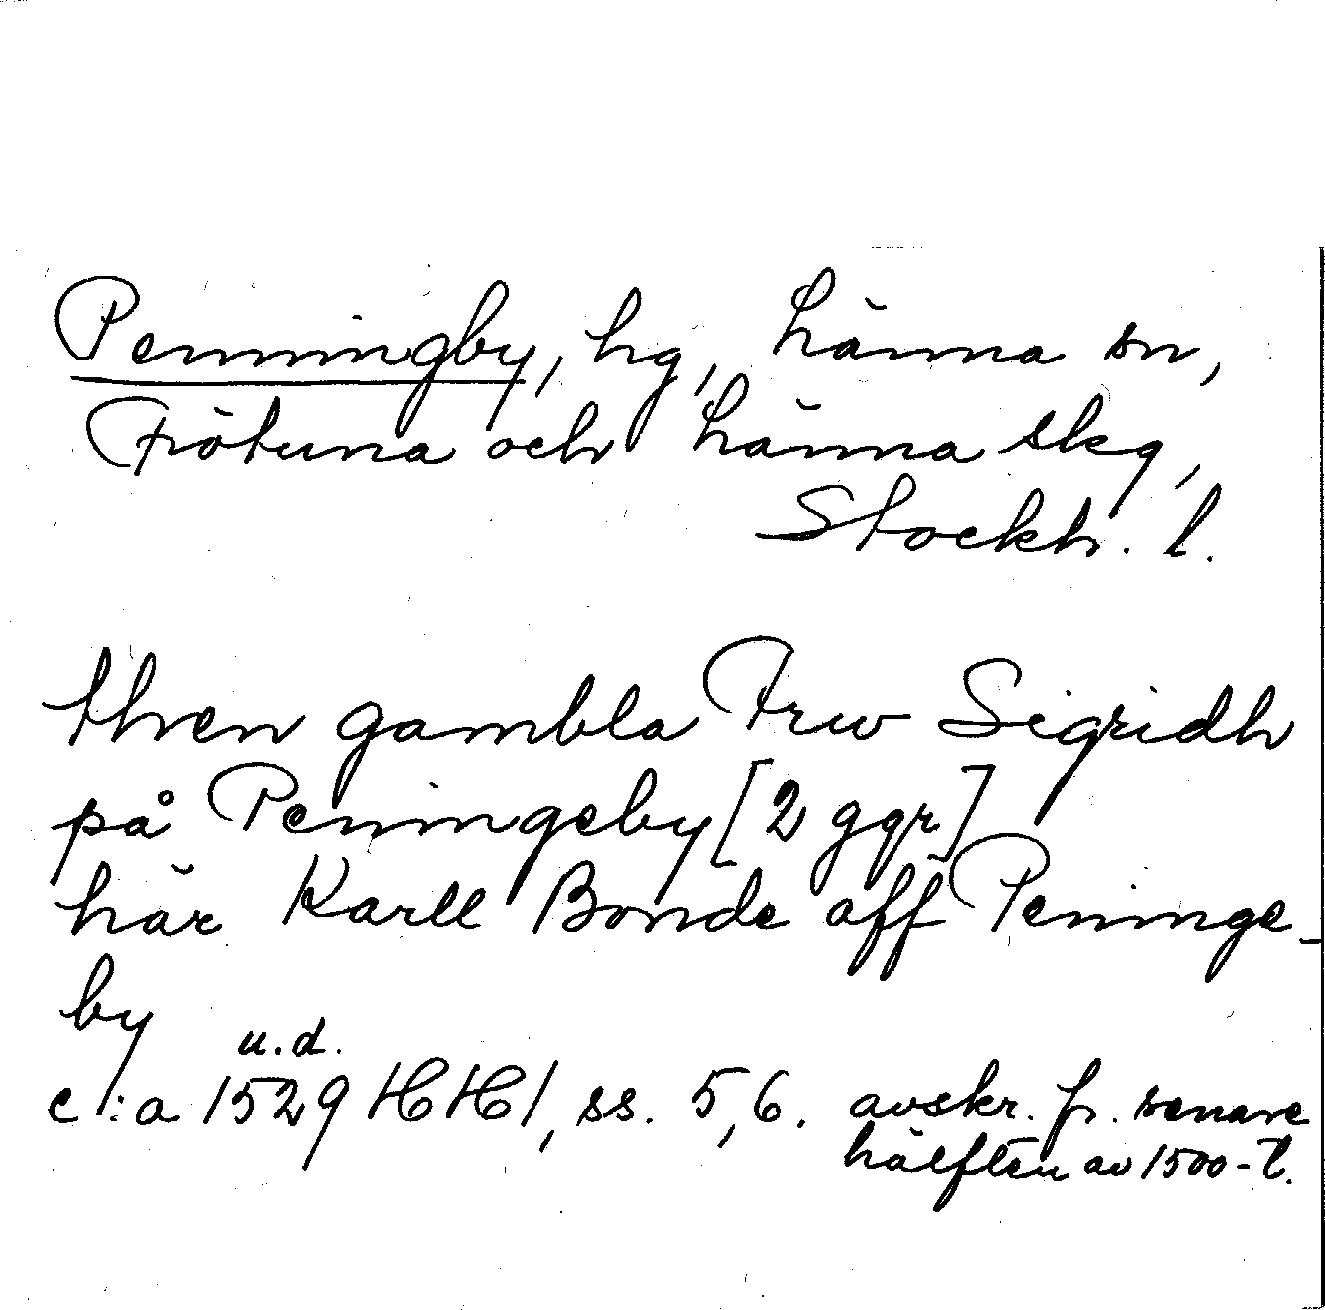 Penningby, hg, Länna sn,
Frötuna och Länna skg,
Stockh. l.
then gambla Frw Sigridh
på Peningeby [2 ggr]
här Karll Bonde aff Peninge-
by
u.d.
c:a 1529 HH1, ss. 5,6. avskr. fr. senare
hälften av 1500-t.